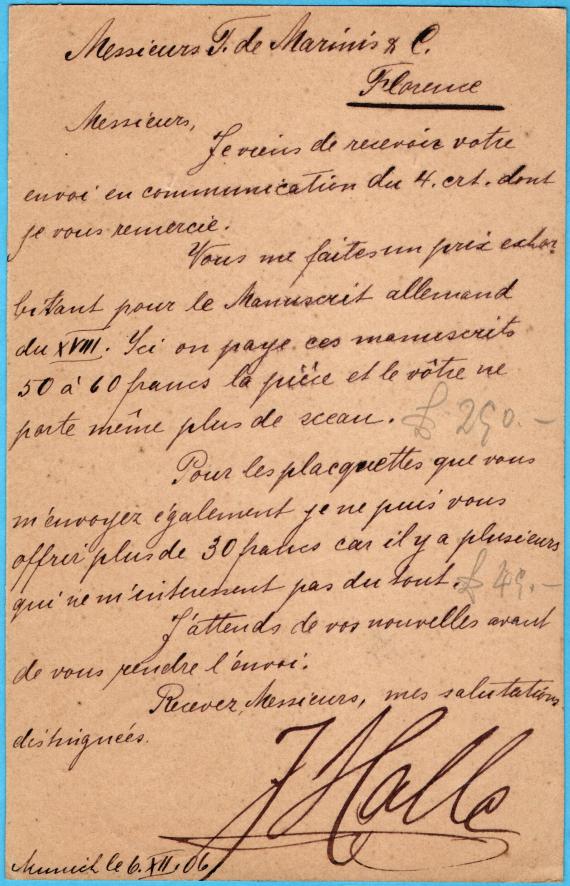 Messieurs T. de Marinis & C.
Florence
Messieurs,
Je viens de recevoir votre
envoi en communication du 4. crt. dont
je vous remercie.
Vous me faites un prix exhor-
bitant pour le Manuscrit allemand
du XVIII. Ici on paye ces manuscrits
50 à 60 francs la pièce et le vôtre ne
porte même plus de sceau. £ 290.-
Pour les placquettes que vous
m'envoyez également je ne puis vous
offrir plus de 30 francs car il y a plusieurs
qui ne m'interessent pas du tout. £ 49.-
J'attends de vos nouvelles avant
de vous rendre l'envoi.
Recevez, Messieurs, mes salutations
distinguées.
J Halle
Munich le 6. XII. 06